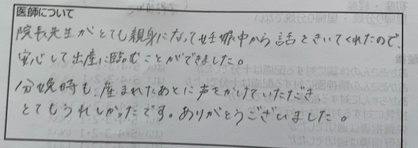 医師について
院長先生がとても親身になって妊娠中から話をきいてくれたので、
安心して出産に臨むことができました。
分娩時も、産まれたあとに声をかけていただき
とてもうれしかったです。ありがとうございました。